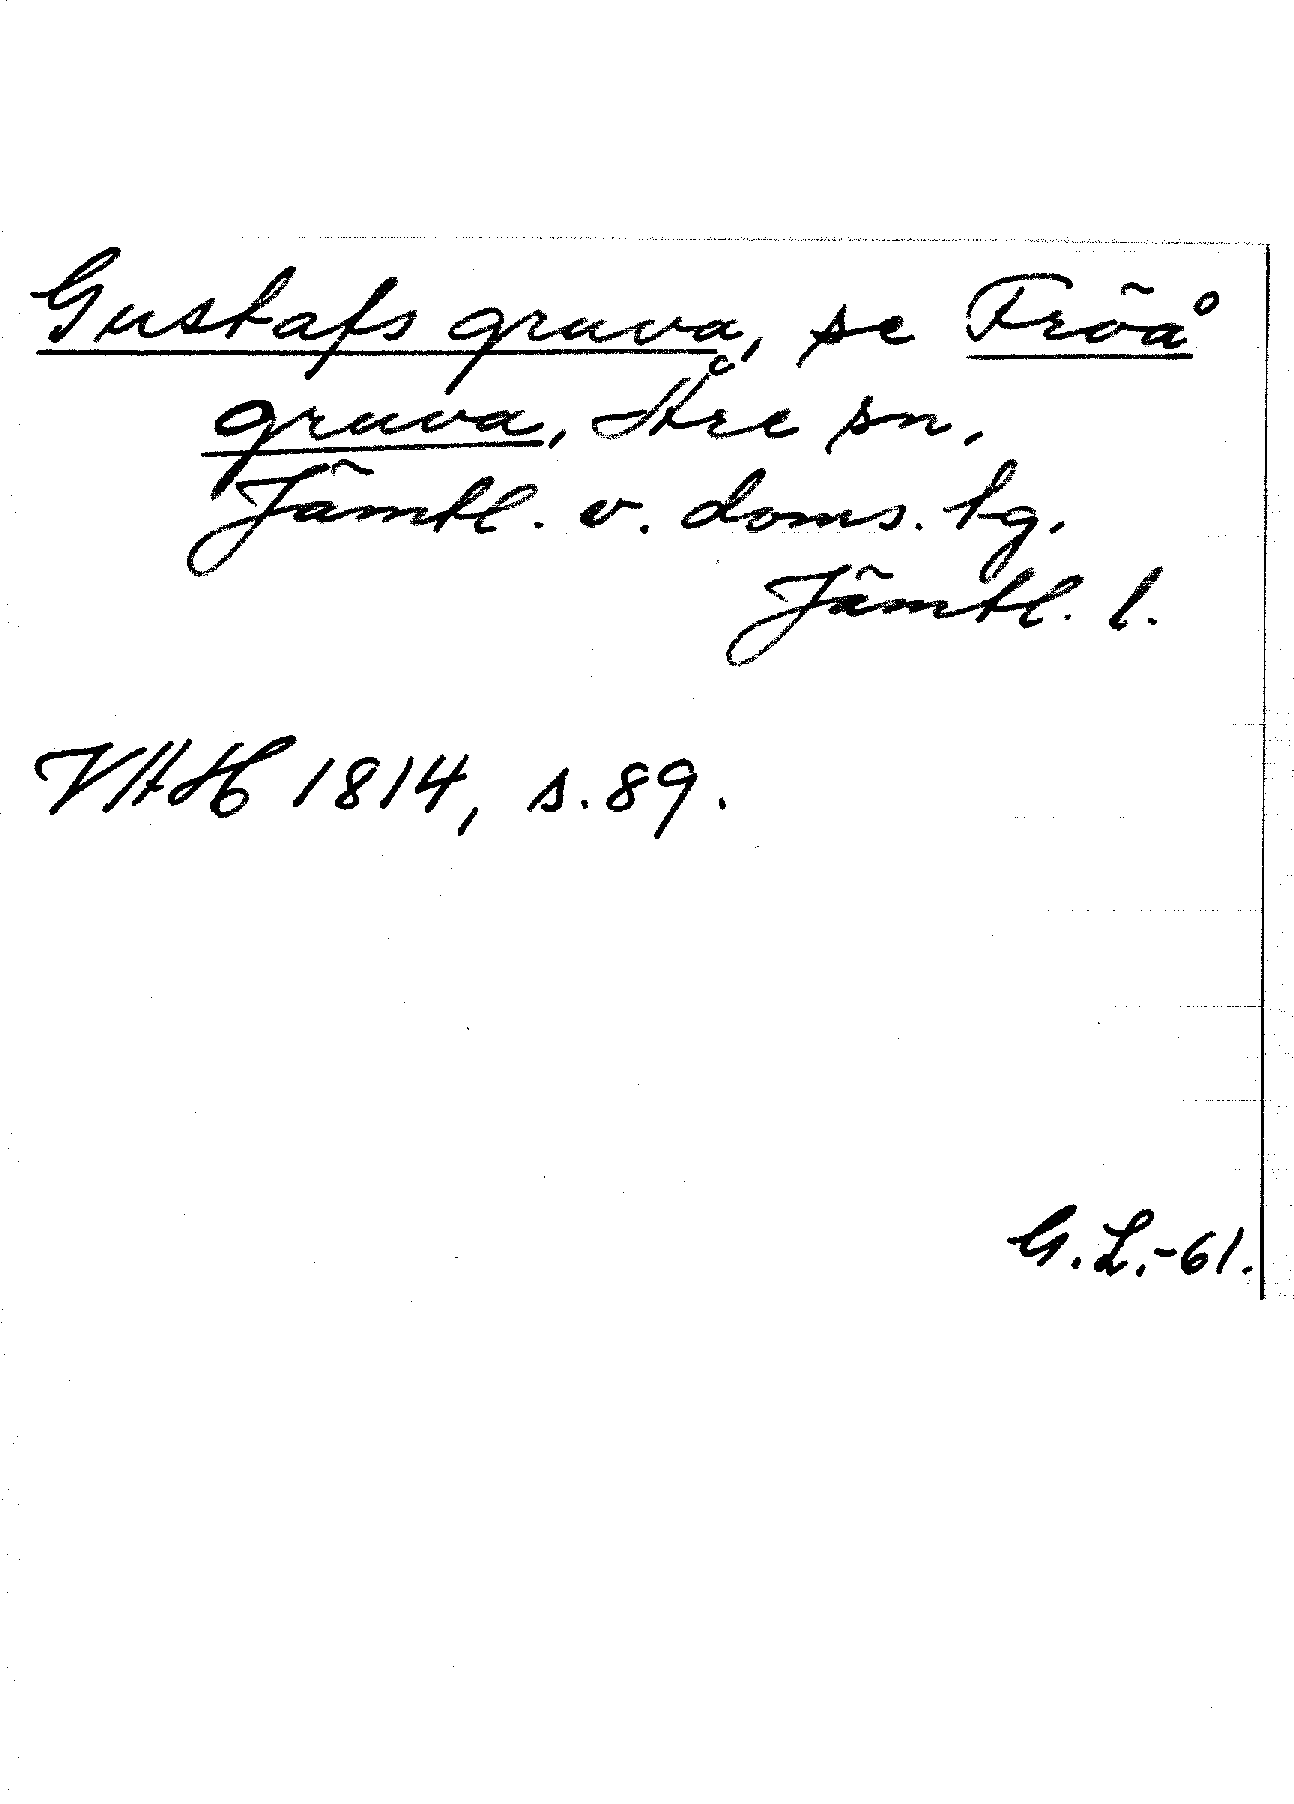 Gustafs gruva, se Fröå
gruva, Åre sn,
Jämtl. v. doms. tg.
Jämtl. l.
VHH 1814, s. 89.
G. L. -61.